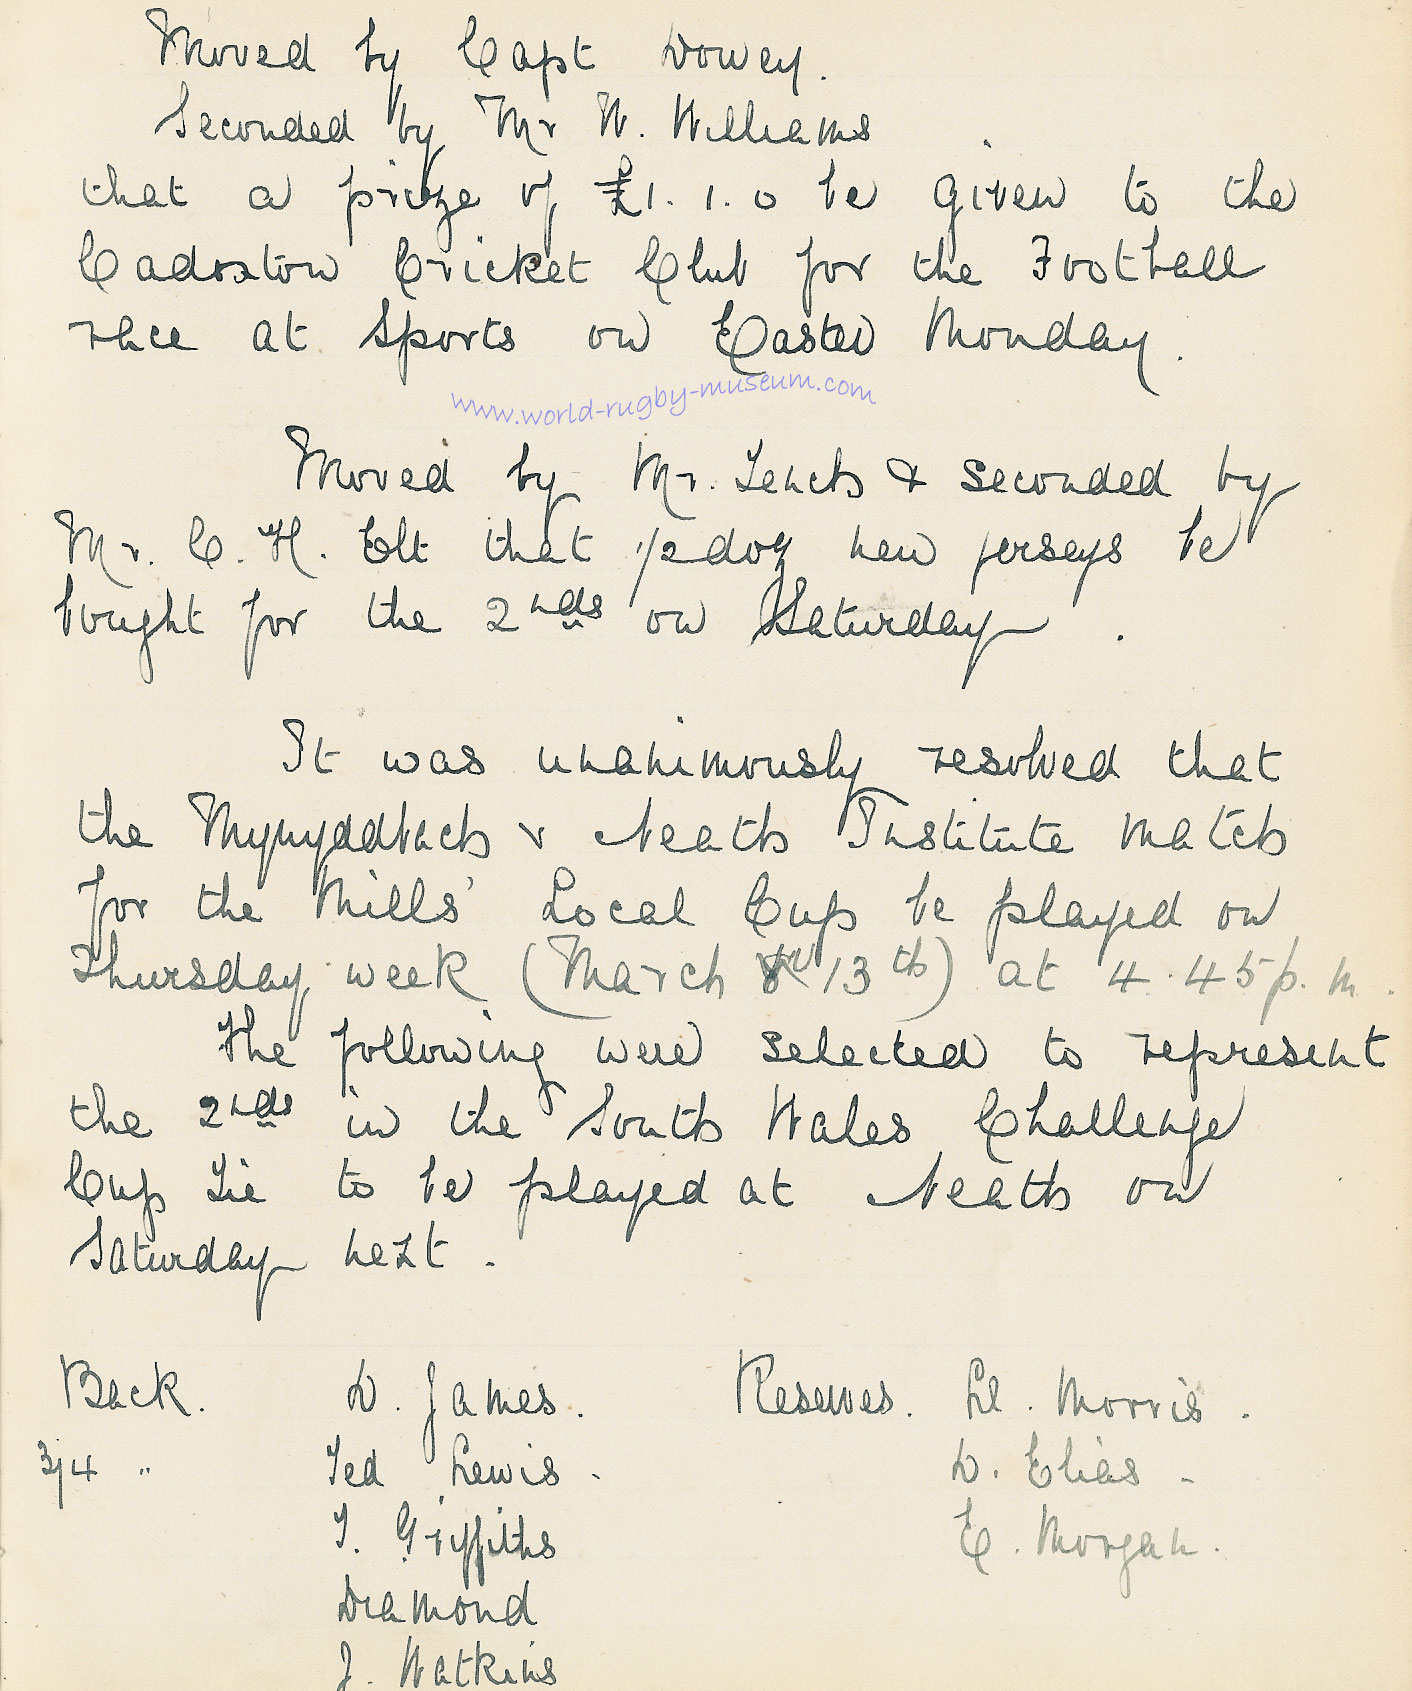 Moved by Capt Dowey.
Seconded by Mr W. Williams
that a prize of £1. 1. 0 be given to the
Cadoxton Cricket Club for the Football
race at Sports on Easter Monday.
www.world-rugby-museum.com
Moved by Mr. Lench & seconded by
Mr. C. H. Elt that 1/2 doz new jerseys be
bought for the 2nds on Saturday.
It was unanimously resolved that
the Mynyddbach v Neath Institute match
for the Mills' Local Cup be played on
Thursday week (March 13th) at 4.45 p.m.
The following were selected to represent
the 2nds in the South Wales Challenge
Cup Tie to be played at Neath on
Saturday next.
Back. D. James. Reserves. Ll. Morris.
3/4 " Ted Lewis. D. Elias -
T. Griffiths E. Morgan.
Diamond
J. Watkins